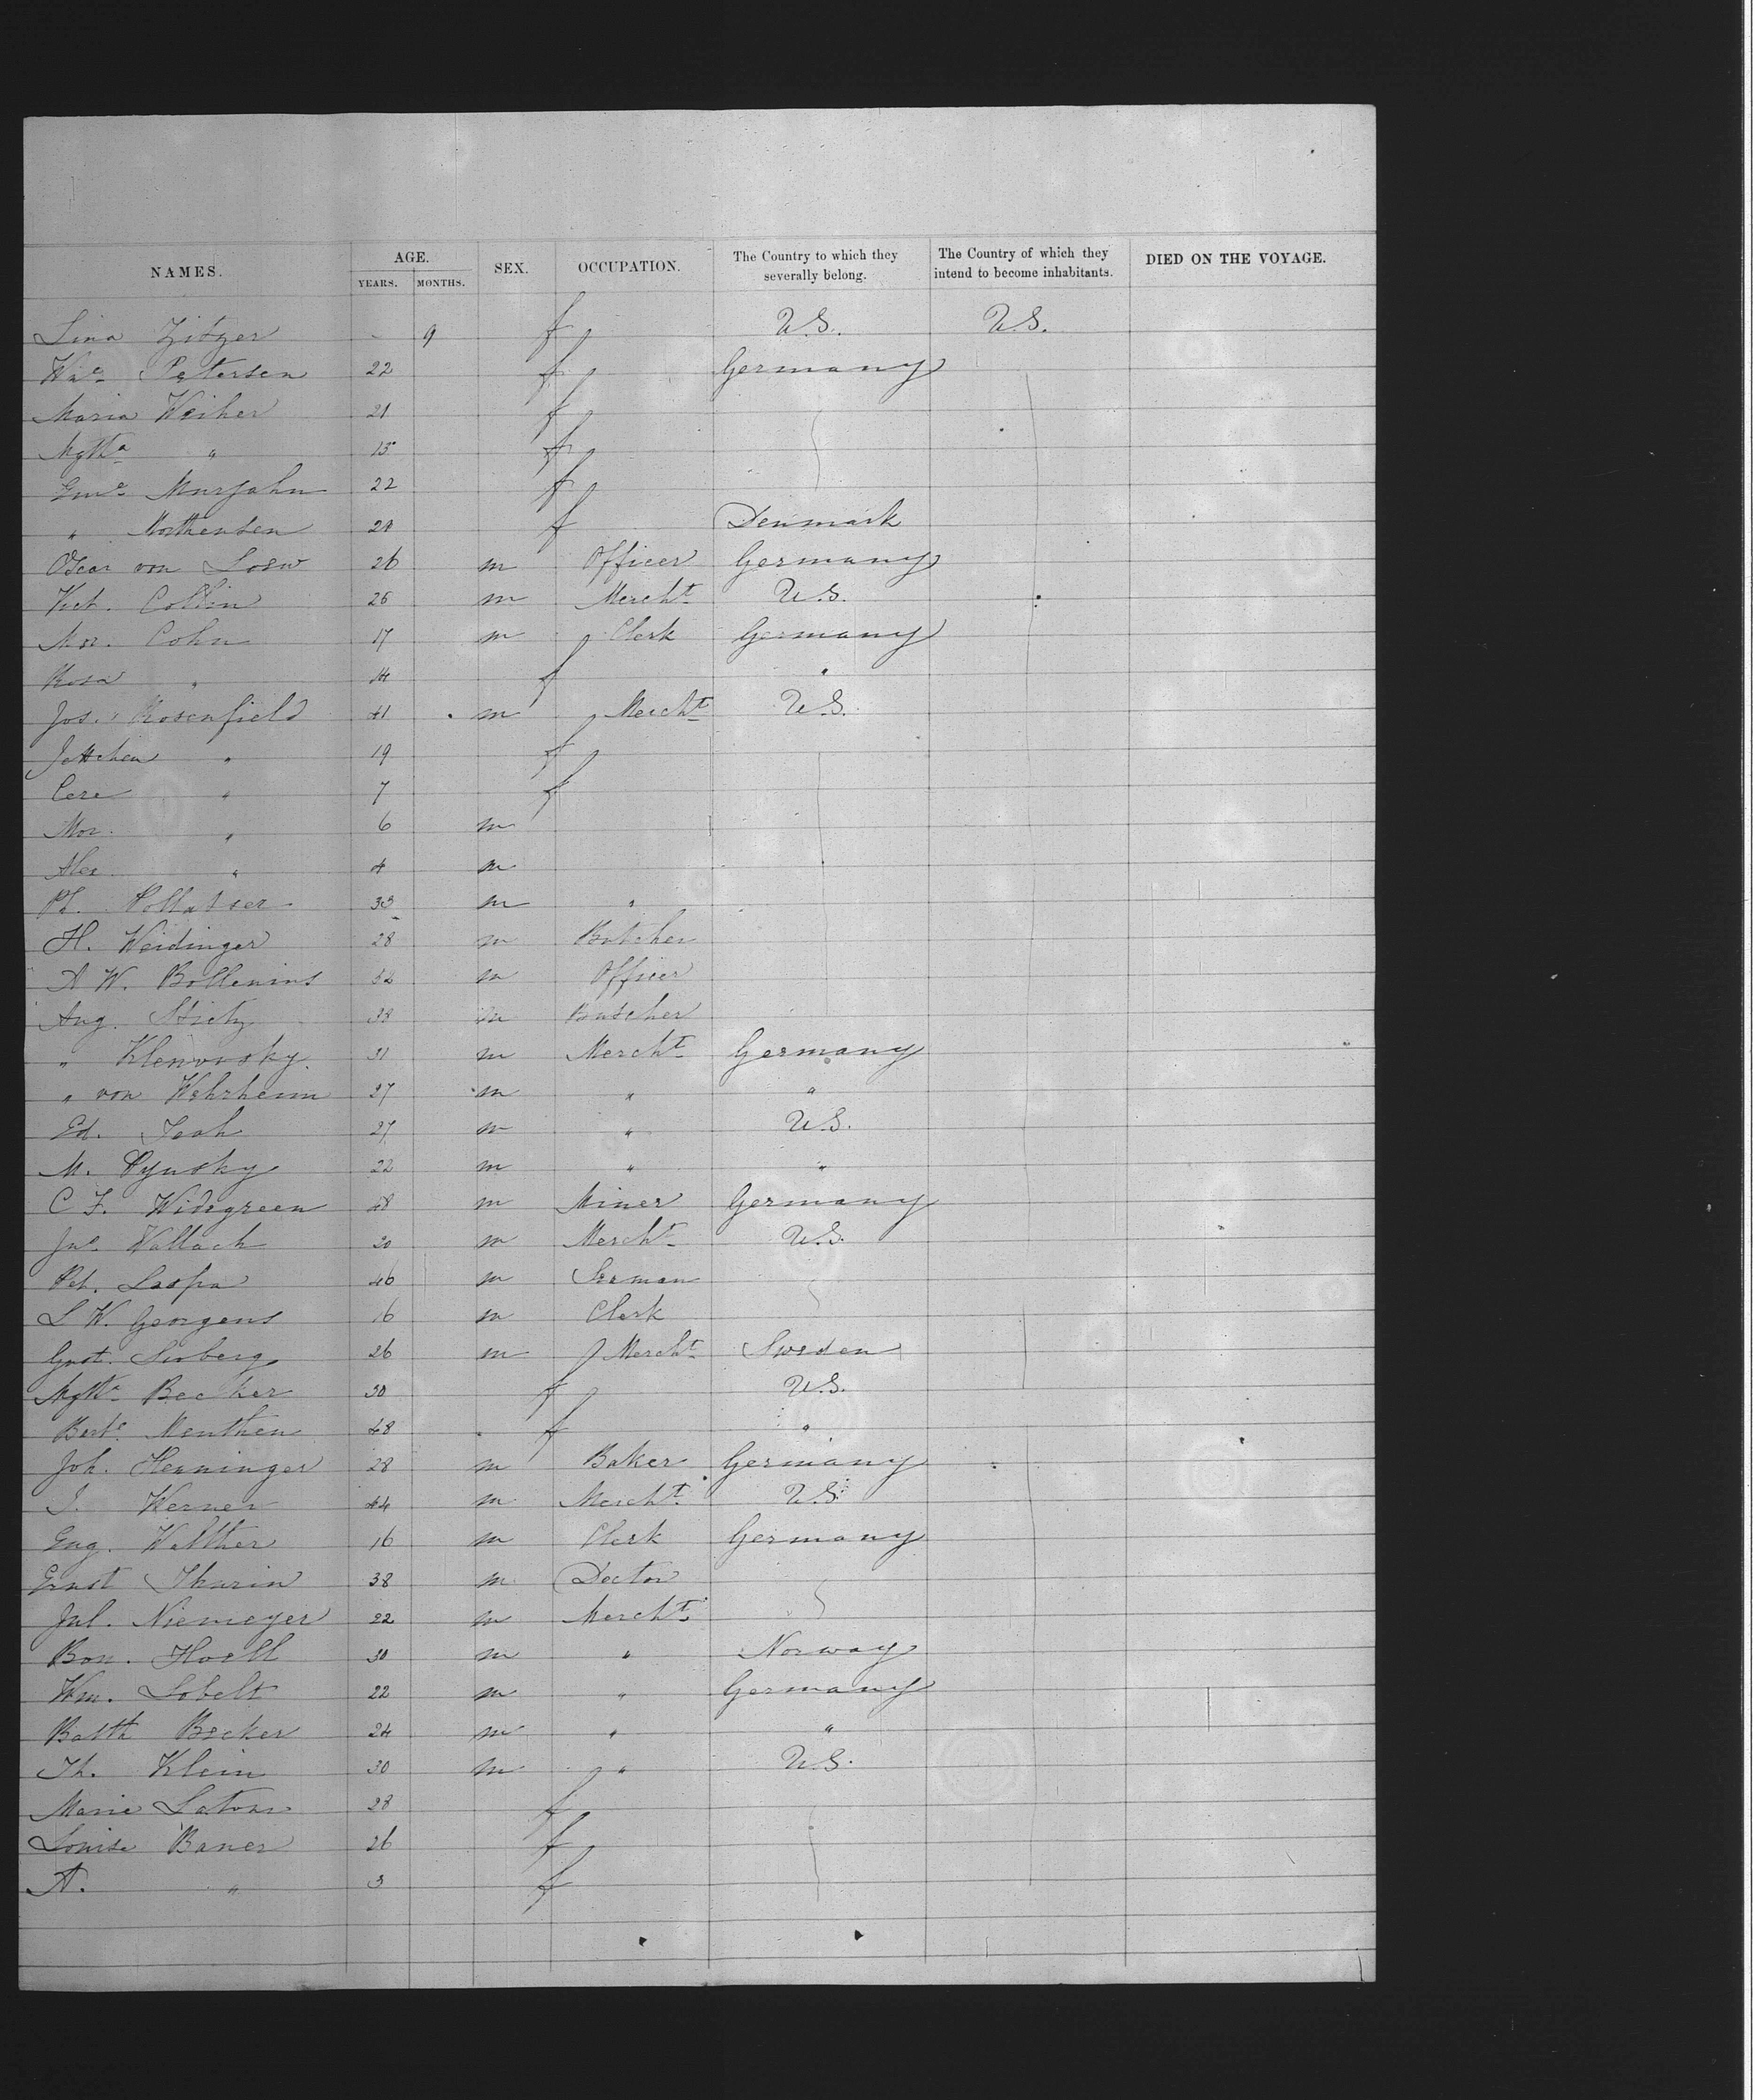 NAMES. AGE. SEX. OCCUPATION. The Country to which they severally belong. The Country of which they intend to become inhabitants. DIED ON THE VOYAGE.
YEARS. MONTHS.
Lina Zitzer - 9 f U.S. U.S.
Petersen 22 f Germany
Maria Weiher 21 f
Mgtha " 15 f
Murjahn 22 f
" Morthensen 21 f Denmark
Oscar von Loew 26 m Officer Germany
Collin 26 m Mercht U.S.
Mor. Cohn 17 m Clerk Germany
Rosa " 14 f "
Jos. Rosenfield 41 m Mercht U.S.
Jettchen " 19 f
Cere " 7 f
Mor. " 6 m
Alex " 4 m
Ph. 33 m "
H. Weidinger 28 m Butcher
A W. Bollenius 52 m Officer
Aug. Stietz 38 m Butcher
" Klenovsky. 31 m Mercht Germany
" von Wehrheim 37 m " "
Ed. 27 m " U.S.
M. 22 m " "
C F. Widegreen 48 m Miner Germany
Wallach 30 m Mercht U.S.
Pet. 46 m Seaman
L W. Georgens 16 m Clerk
Gust. Sioberg 26 m Mercht Sweden
Mgtha Becker 30 f U.S.
Menthen 48 f "
Joh. Henninger 28 m Baker Germany
J. Werner 44 m Mercht U.S.
Eug. Walther 16 m Clerk Germany
Ernst Thurin 38 m Doctor
Jul. Niemeyer 22 m Mercht
Bon. Hoell 30 m " Norway
Wm. Lobelt 22 m " Germany
Balth Becker 24 m " "
Th. Klein 30 m " U.S.
Marie 28 f
Louise Baner 26 f
A. " 3 f